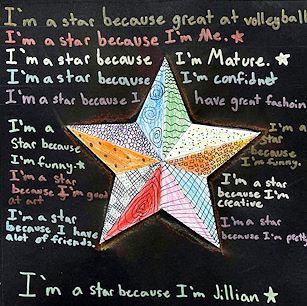 I'm a star because great at volleyball
I'm a star because I'm Me.
I'm a star because I'm Mature.
I'm a star because I'm confidnt
I'm a star because I have great fashoin
I'm a
Star because
I'm funny.
I'm a
Star
because
I'm funny.
I'm a star
because I'm good
at art
I'm a star
because I'm
creative
I'm a star
because I have
alot of friends.
I'm a star
because I'm pretty
I'm a star because I'm Jillian